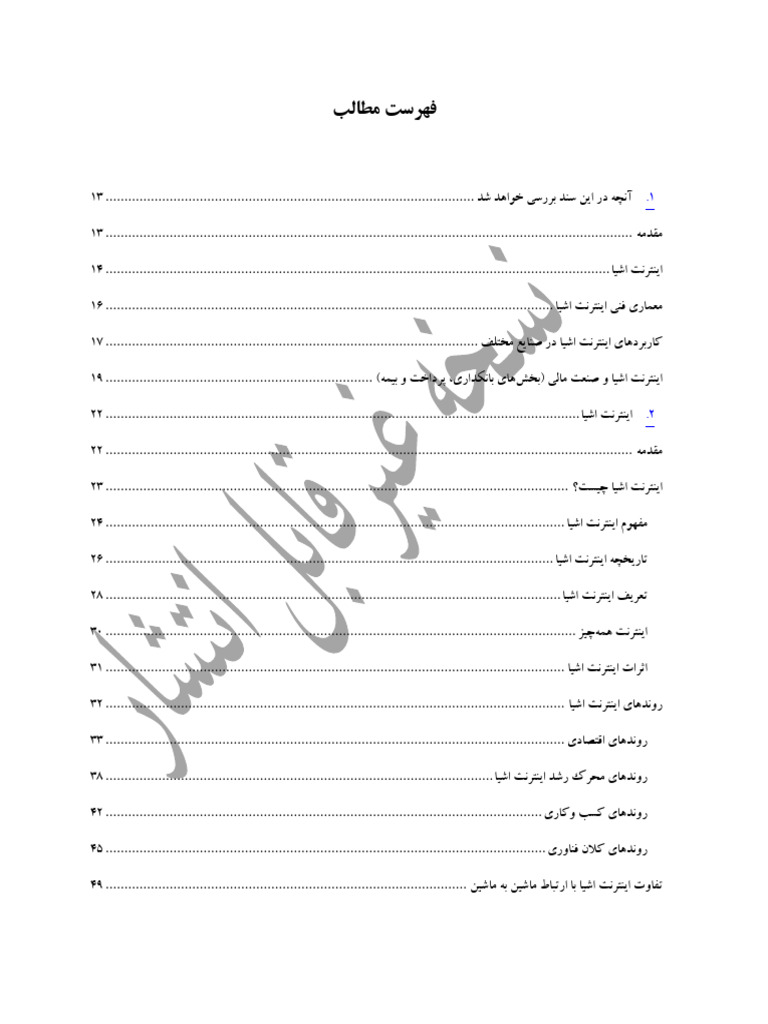 فهرست مطالب
۱. آنچه در این سند بررسی خواهد شد ........ ۱۳
مقدمه ........ ۱۳
اینترنت اشیا ........ ۱۴
معماری فنی اینترنت اشیا ........ ۱۶
کاربردهای اینترنت اشیا در صنایع مختلف ........ ۱۷
اینترنت اشیا و صنعت مالی (بخش‌های بانکداری، پرداخت و بیمه) ........ ۱۹
۲. اینترنت اشیا ........ ۲۲
مقدمه ........ ۲۲
اینترنت اشیا چیست؟ ........ ۲۳
مفهوم اینترنت اشیا ........ ۲۴
تاریخچه اینترنت اشیا ........ ۲۶
تعریف اینترنت اشیا ........ ۲۸
اینترنت همه‌چیز ........ ۳۰
اثرات اینترنت اشیا ........ ۳۱
روندهای اینترنت اشیا ........ ۳۲
روندهای اقتصادی ........ ۳۳
روندهای محرک رشد اینترنت اشیا ........ ۳۸
روندهای کسب وکاری ........ ۴۲
روندهای کلان فناوری ........ ۴۵
تفاوت اینترنت اشیا با ارتباط ماشین به ماشین ........ ۴۹
نسخه غیر قابل انتشار